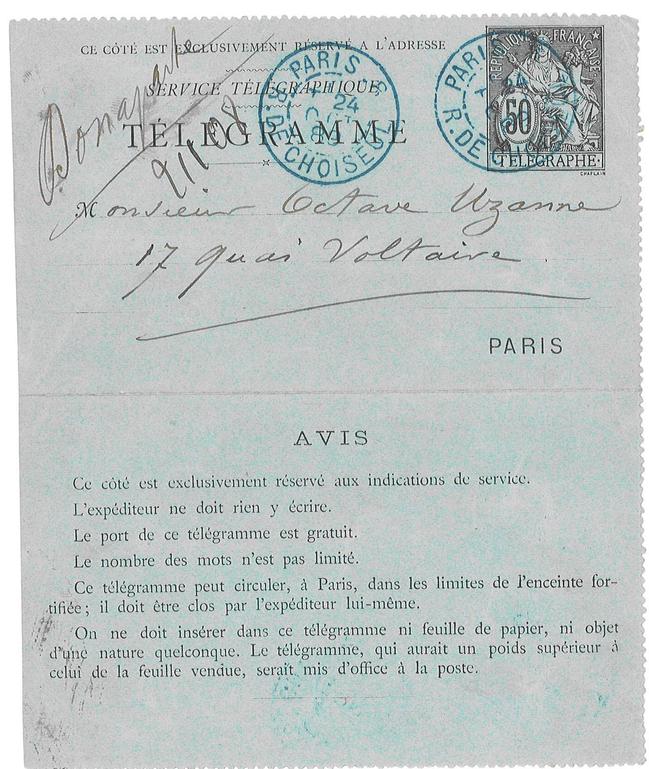 CE CÔTÉ EST EXCLUSIVEMENT RÉSERVÉ A L'ADRESSE
SERVICE TÉLÉGRAPHIQUE
TÉLÉGRAMME
Bonaparte
PARIS
24
R. DE CHOISEUL
PARIS
24
R. DE CHOISEUL
RÉPUBLIQUE FRANÇAISE
50
TÉLÉGRAPHE
CHAPLAIN
Monsieur Octave Uzanne
17 quai Voltaire
PARIS
AVIS
Ce côté est exclusivement réservé aux indications de service.
L'expéditeur ne doit rien y écrire.
Le port de ce télégramme est gratuit.
Le nombre des mots n'est pas limité.
Ce télégramme peut circuler, à Paris, dans les limites de l'enceinte for-
tifiée; il doit être clos par l'expéditeur lui-même.
On ne doit insérer dans ce télégramme ni feuille de papier, ni objet
d'une nature quelconque. Le télégramme, qui aurait un poids supérieur à
celui de la feuille vendue, serait mis d'office à la poste.